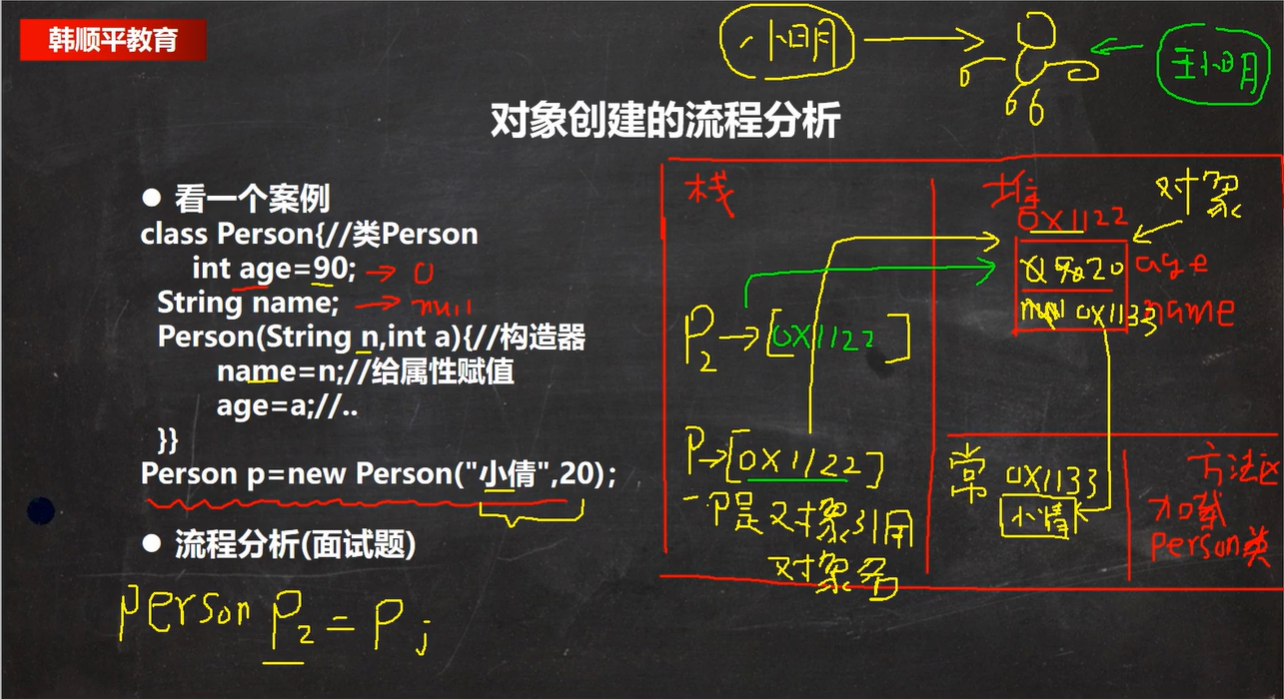 韩顺平教育
小明
王小明
对象创建的流程分析
● 看一个案例
class Person{//类Person
int age=90; → 0
String name; → null
Person(String n,int a){//构造器
name=n;//给属性赋值
age=a;//..
}}
Person p=new Person("小倩",20);
● 流程分析(面试题)
person P2 = P;
栈
P2→[0X1122]
P→[0X1122]
P是对象引用
对象名
堆
0X1122
对象
90 20 age
null 0X1133 name
常
0X1133
小倩
方法区
加载
Person类